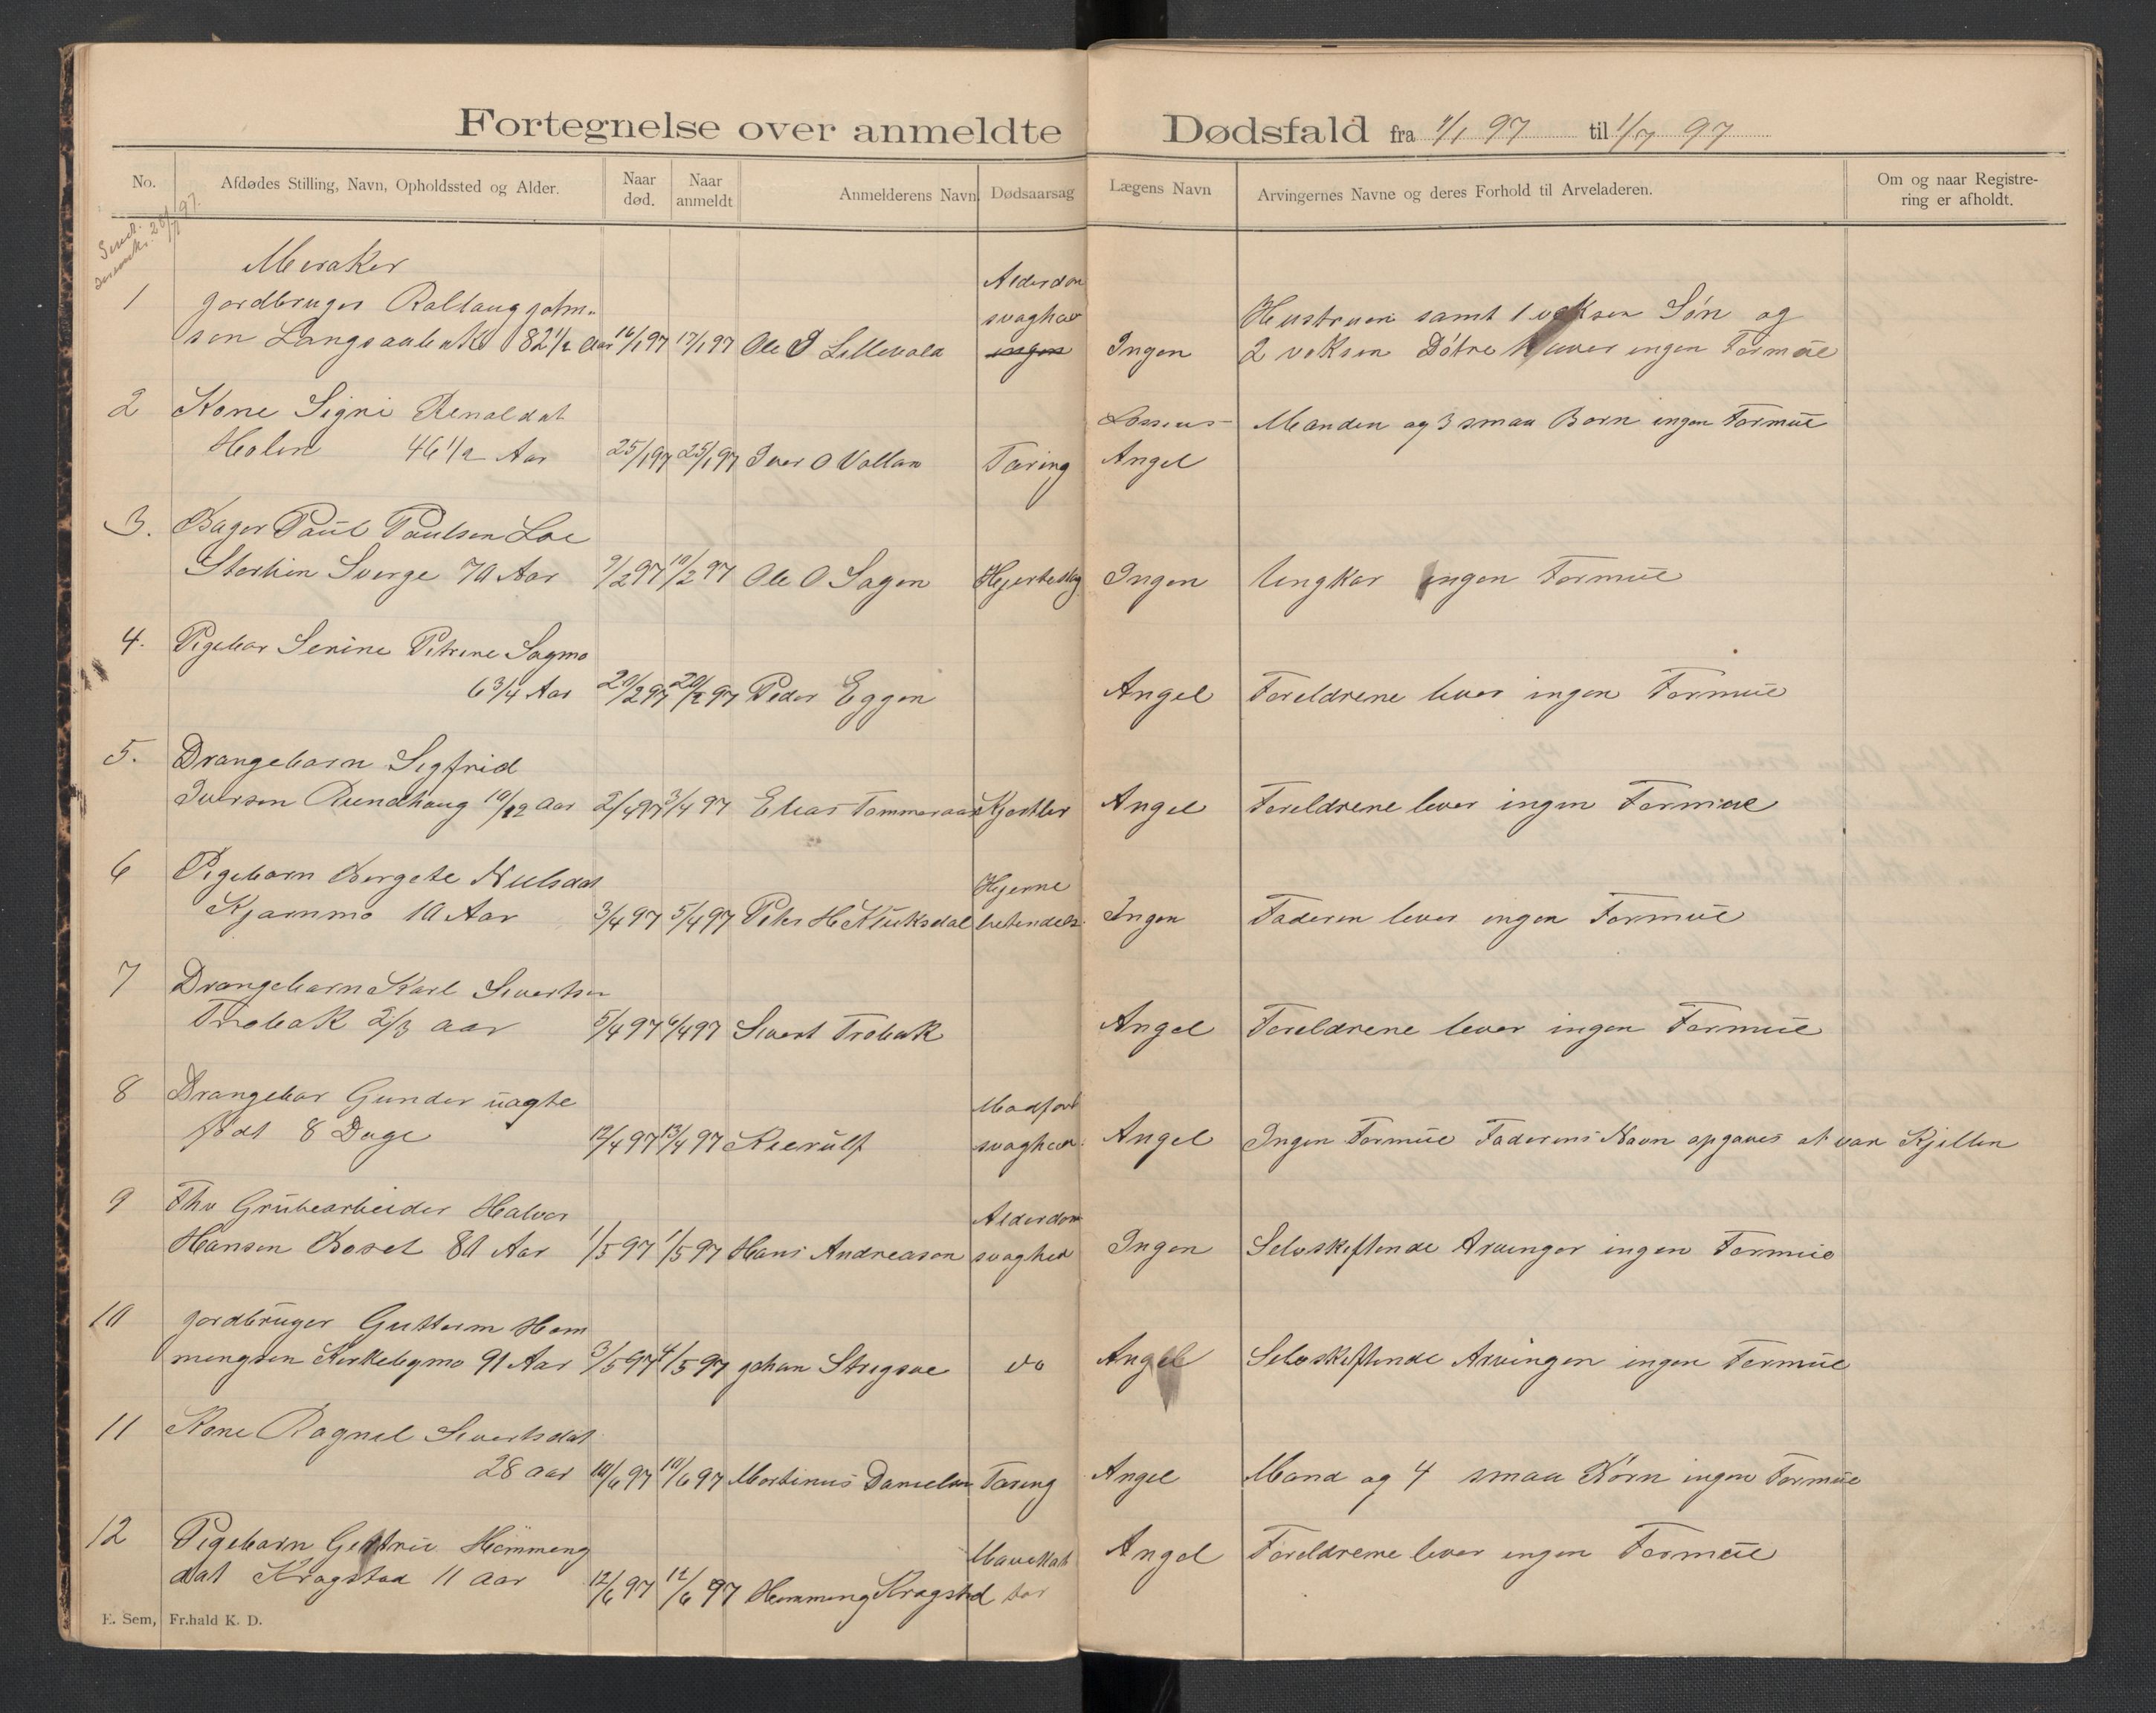 Fortegnelse over anmeldte Dødsfald fra 1/1 97 til 1/7 97
No. Afdødes Stilling, Navn, Opholdssted og Alder. Naar død. Naar anmeldt Anmelderens Navn. Dødsaarsag Lægens Navn Arvingernes Navne og deres Forhold til Arveladeren. Om og naar Registrering er afholdt.
Meraker
Alderdom
1 Jordbruger John- svaghed Hustruen samt 1 voksen Søn og
sen 82 1/2 Aar 16/1 97 17/1 97 Ole Lillevold ingen Ingen 2 voksen Døtre lever ingen Formue
2 Kone Signi Renaldat Manden og 3 smaa Born ingen Formue
Holen 46 1/2 Aar 25/1 97 25/1 97 Iver O Vollan Tæring Angel
3. Bager Paul Paulsen Loe
Storlien Sverge 70 Aar 9/2 97 10/2 97 Ole O Sagen Hjerteslag Ingen Ungkar ingen Formue
4. Pigebar Serine Petrine Sagmo
6 3/4 Aar 20/2 97 20/2 97 Peder Eggen Angel Foreldrene lever ingen Formue
5. Drangebarn Sigfrid
Iversen Rundhaug 10/12 Aar 2/4 97 3/4 97 Elias Tommeraas Kjertler Angel Foreldrene lever ingen Formue
6 Pigebarn Bergete Nielsdat Hjerne
Kjarnmo 10 Aar 3/4 97 5/4 97 Peter H Kluksdal betendels. Ingen Faderen lever ingen Formue
7 Drangebarn Karl Sivertsen
Trobak 2/3 aar 5/4 97 6/4 97 Sivert Trobak Angel Foreldrene lever ingen Formue
8 Drangebar Gunder uagte Madfodt
fodt 8 Dage 12/4 97 13/4 97 Kierulf svaghed. Angel Ingen Formue Faderens Navn opgaves at van Kjellen
9 Fhv Grubearbeider Halvor Alderdom
Hansen Boset 80 Aar 1/5 97 1/5 97 Hans Andreasen svaghed Ingen Selvskiftende Arvinger ingen Formue
10 Jordbruger Guttorm Hem
mingsen Kirkebymo 91 Aar 3/5 97 4/5 97 Johan Stregsve do Angel Selvskiftende Arvingen ingen Formue
11 Kone Ragnel Sivertsdat
28 aar 10/6 97 10/6 97 Martinus Danielsen Tæring Angel Mand og 4 smaa Børn ingen Formue
12 Pigebarn Gertrue Hemmeng Mavekat Angel Foreldrene lever ingen Formue
dat Kragstad 11 aar 12/6 97 12/6 97 Hemmeng Kragstad tar
E. Sem, Fr.hald K. D.